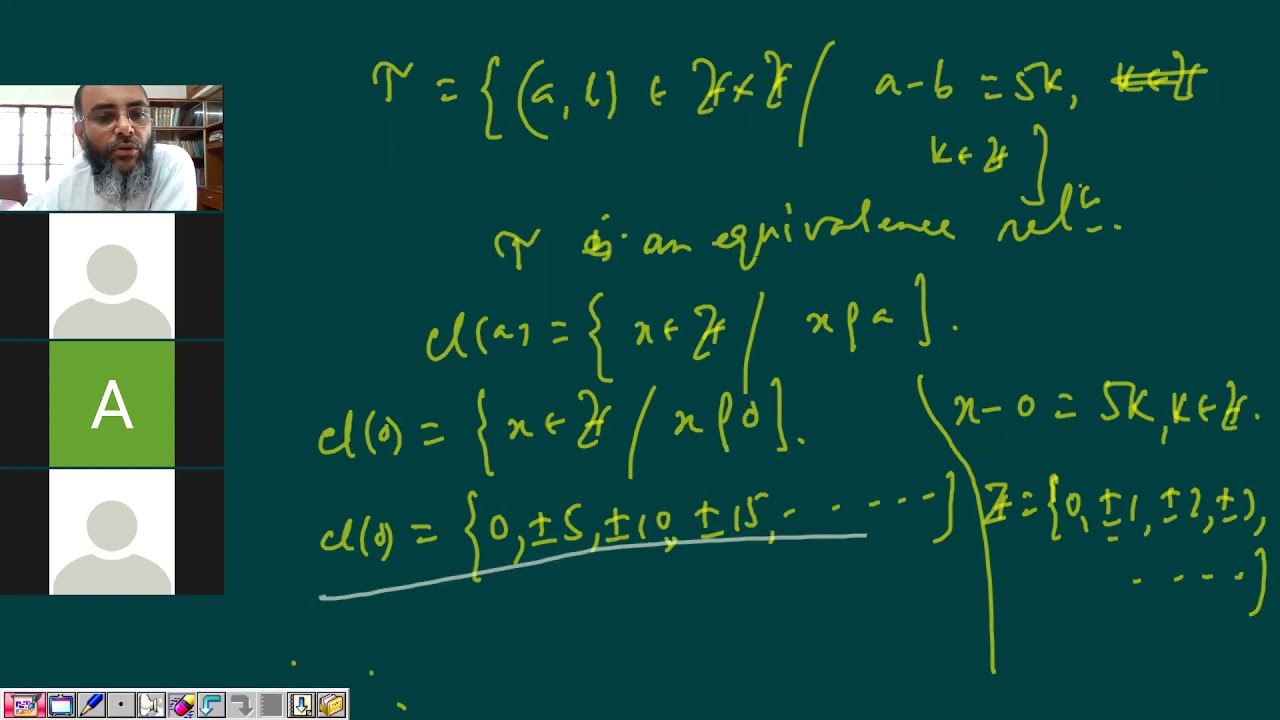 r = {(a, b) ∈ ℤ×ℤ / a-b = 5k, k∈ℤ
k∈ℤ}
r is an equivalence relⁿ.
cl(a) = {x∈ℤ / xρa}.
cl(0) = {x∈ℤ / xρ0}.
cl(0) = {0, ±5, ±10, ±15, .......}
x-0 = 5k, k∈ℤ.
ℤ = {0, ±1, ±2, ±3,
.....}
A